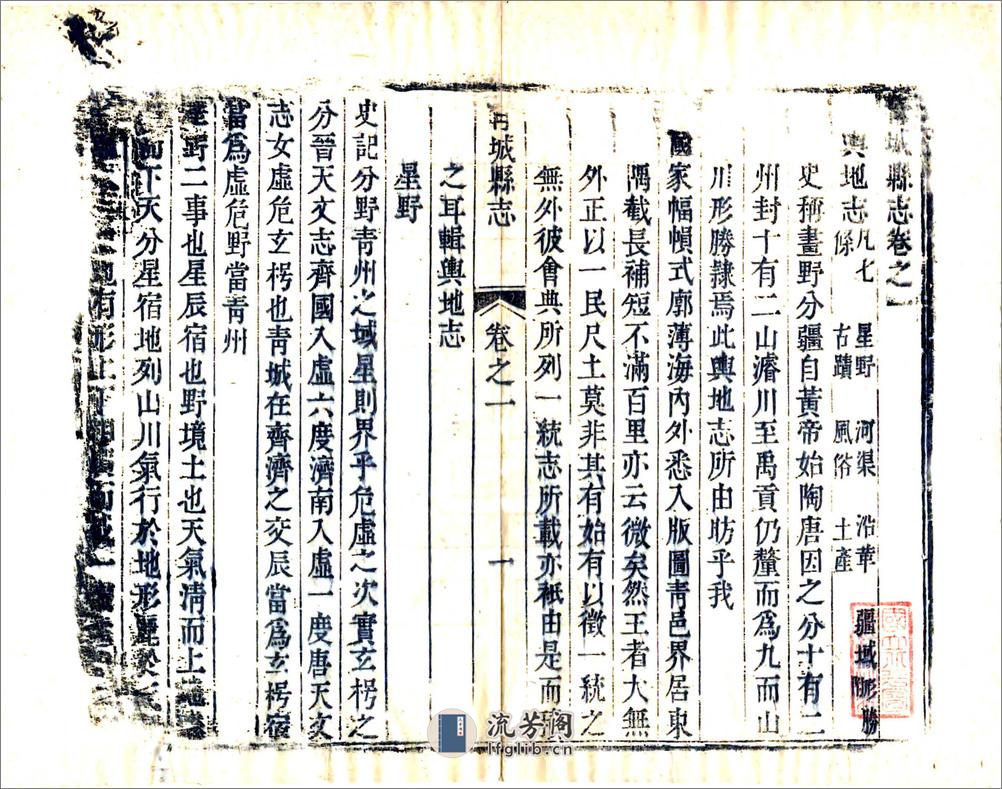 城縣志卷之一
輿地志凡七條 星野 河渠 沿革 疆域形勝附 古蹟 風俗 土產
史稱畫野分疆自黃帝始陶唐因之分十有二
州封十有二山濬川至禹貢仍釐而為九而山
川形勝隷焉此輿地志所由昉乎我
國家幅幀式廓薄海內外悉入版圖青邑界居東
隅截長補短不滿百里亦云微矣然王者大無
外正以一民尺土莫非其有始有以徵一統之
無外彼會典所列一統志所載亦祇由是而
青城縣志 卷之一 一
之耳輯輿地志
星野
史記分野青州之域星則界乎危虛之次實玄枵之
分晉天文志齊國入虛六度濟南入虛一度唐天文
志女虛危玄枵也青城在齊濟之交辰當為玄枵宿
當為虛危野當青州
星野二事也星辰宿也野境土也天氣清而上地
而下天分星宿地列山川氣行於地形麗於天
地有形
流芳阁
lfglib.cn